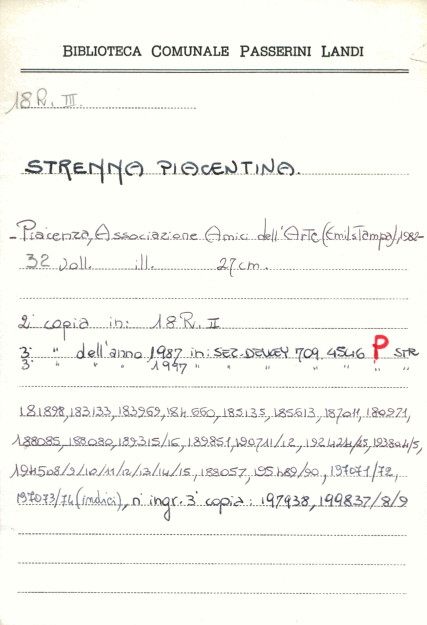 BIBLIOTECA COMUNALE PASSERINI LANDI
18R. III.
STRENNA PIACENTINA.
- Piacenza, Associazione Amici dell'Arte (Emilstampa), 1982-
32 voll. ill. 27 cm.
2ª copia in: 18 R. II
3ª " dell'anno 1987 in: SEZ. DEWEY 709.4546 P STR
3ª " " " 1997 " " " " "
181898, 183133, 183969, 184660, 185135, 185613, 187011,
188085, 189315/16, 189851, 190711/12,
194508/9/10/11/12/13/14/15, 197071/72,
197073/74 (indici), n° ingr. 3ª copia: 197938, 199837/8/9